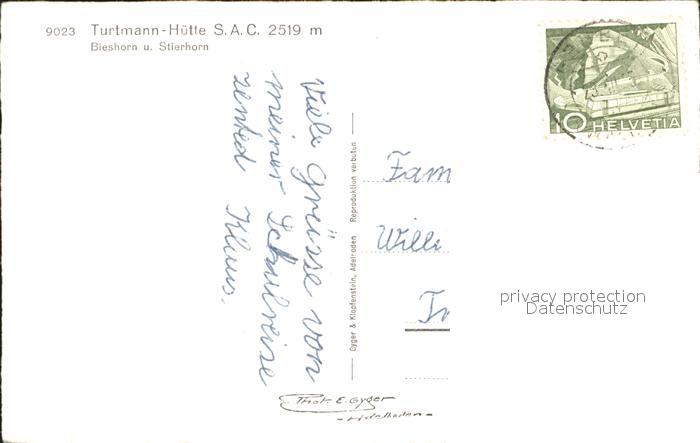 9023 Turtmann-Hütte S.A.C. 2519 m
Bieshorn u. Stierhorn
Viele Grüsse von
meiner Schulreise
sented Klaus.
Gyger & Klopfenstein, Adelboden Reproduktion verboten
Fam
Wille
Phot. E. Gyger
- Adelboden -
10 HELVETIA
privacy protection
Datenschutz